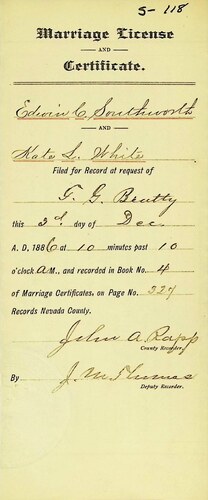 5-118
Marriage License
AND
Certificate.
Edwin C. Southworth
AND
Kate L. White
Filed for Record at request of
F. G. Beatty
this 3d day of Dec.
A. D. 1886 at 10 minutes past 10
o'clock A M., and recorded in Book No. 4
of Marriage Certificates, on Page No. 327
Records Nevada County.
John A. Rapp
County Recorder.
By J. M. Thomas
Deputy Recorder.